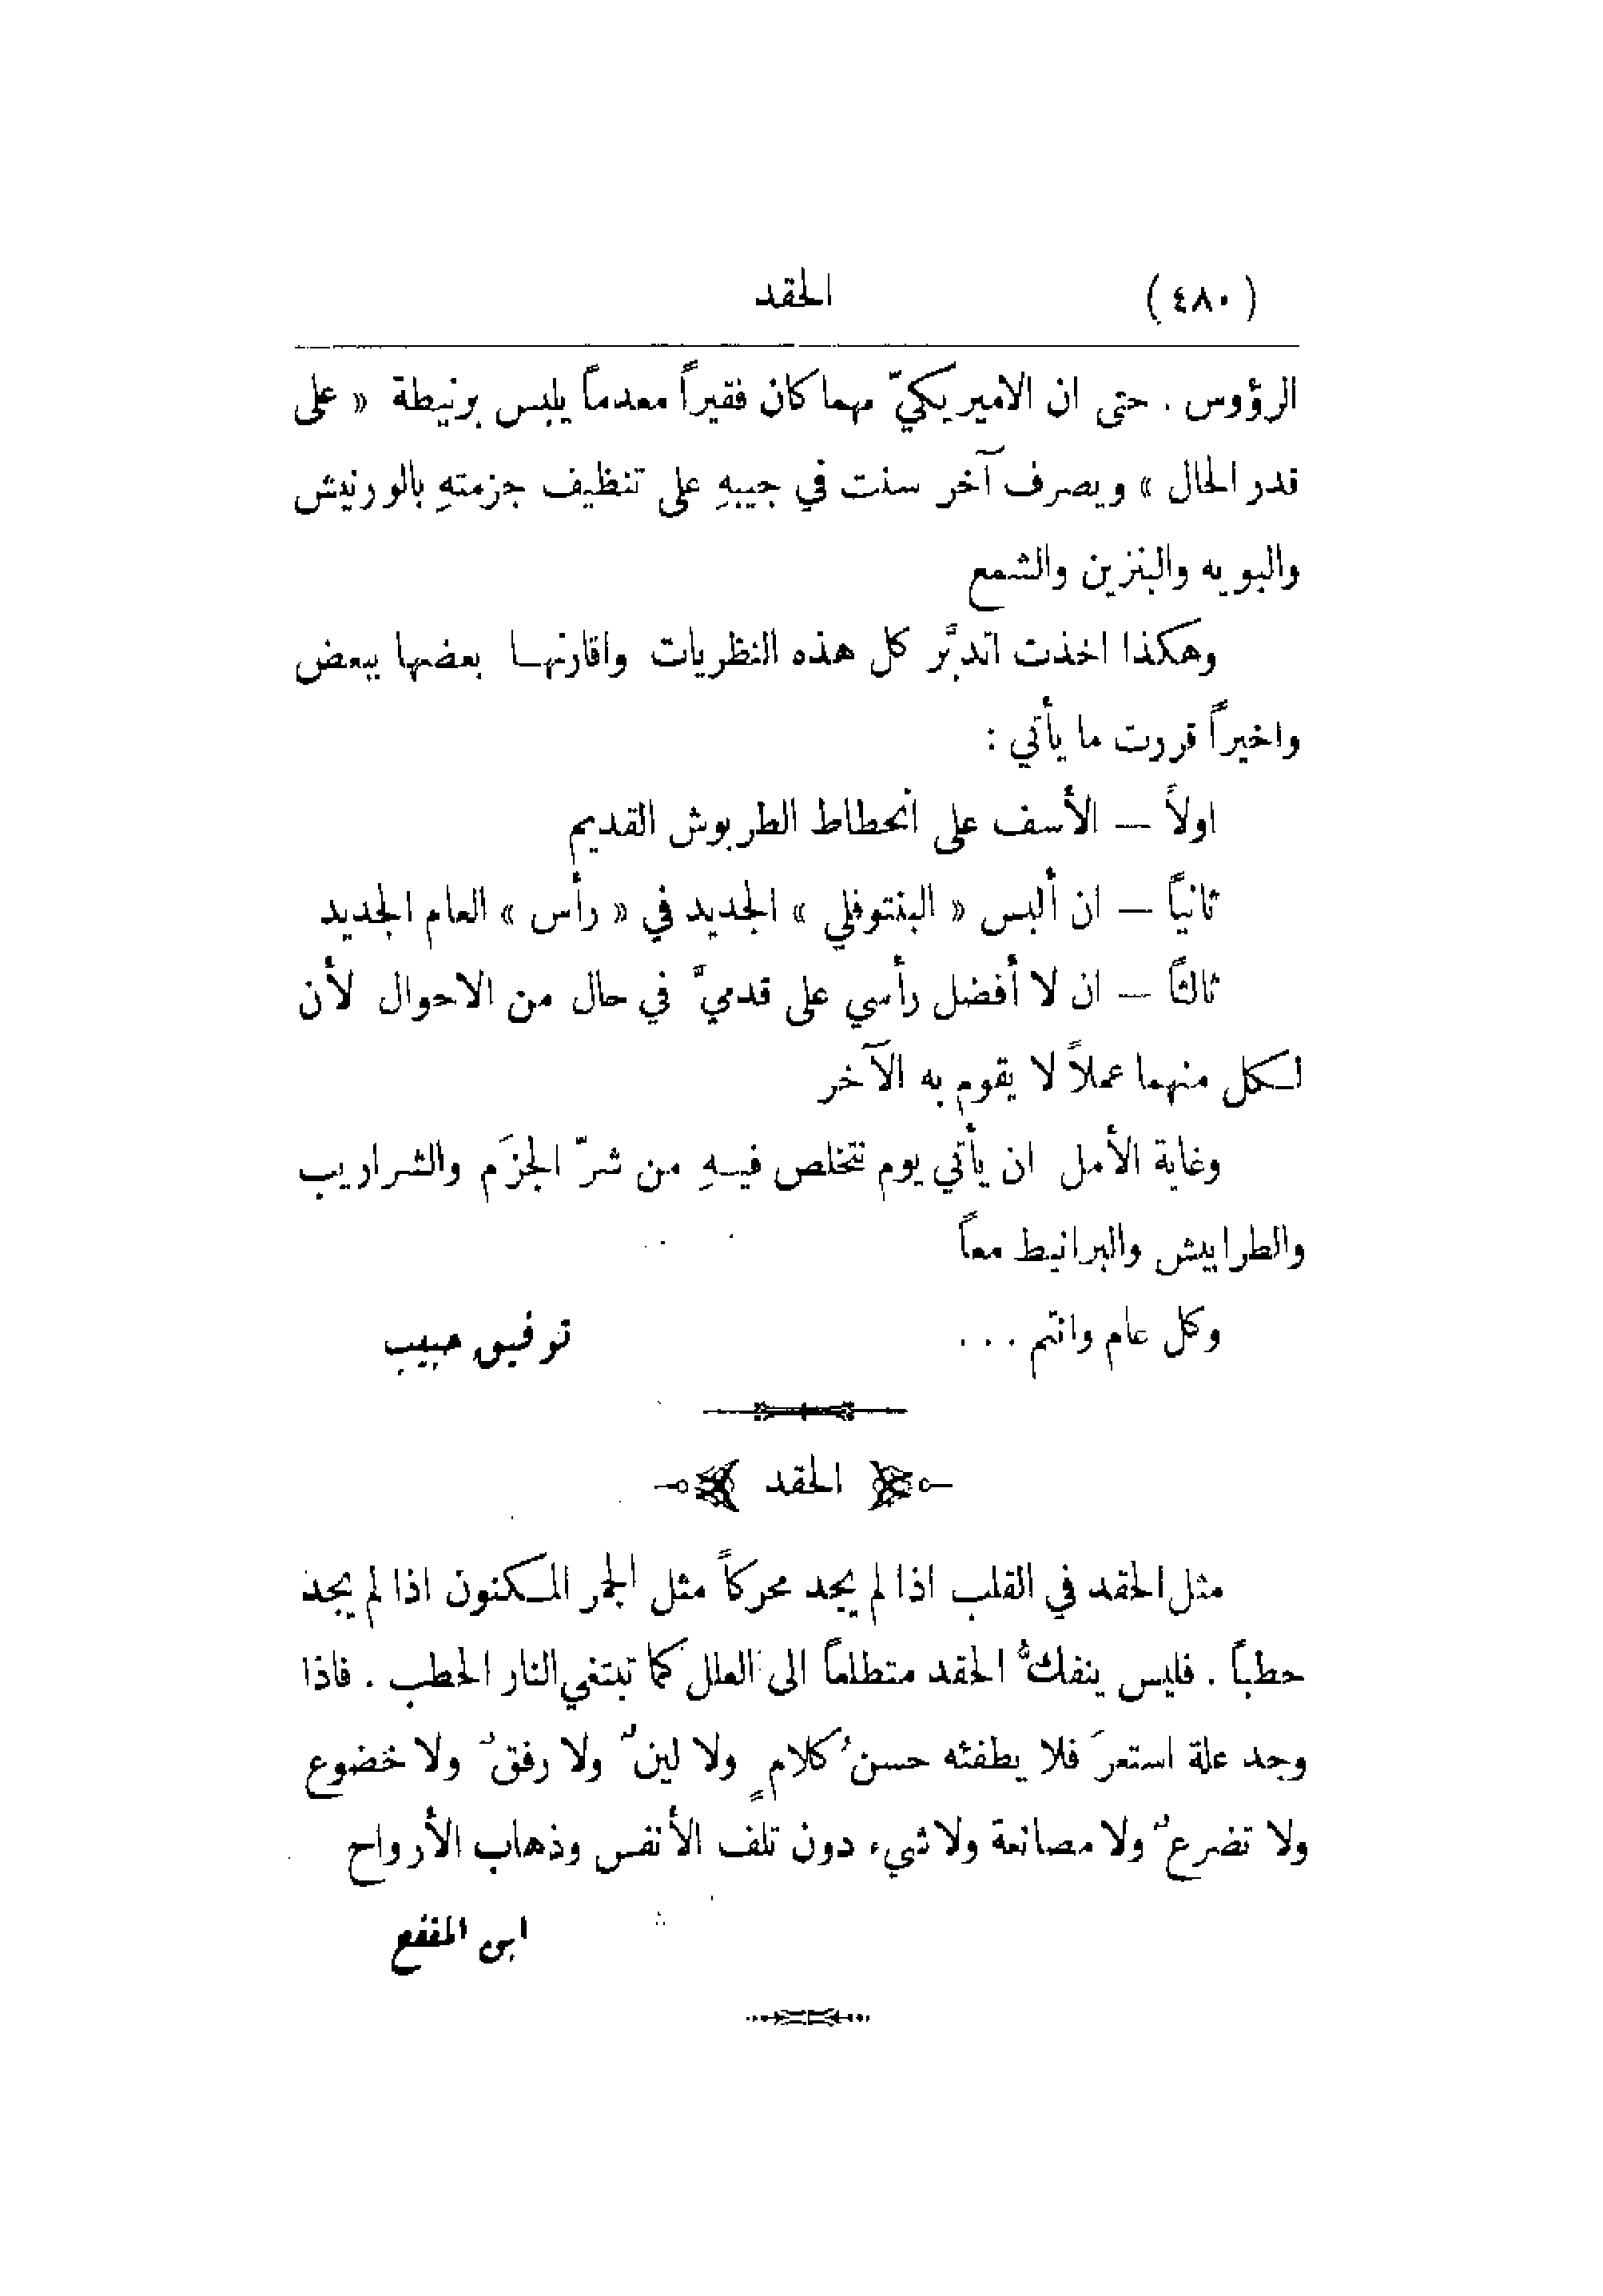 (٤٨٠) الحقد
الرؤوس . حتى ان الاميريكيّ مهما كان فقيراً معدماً يلبس برنيطة « على
قدر الحال » ويصرف آخر سنت في جيبهِ على تنظيف جزمتهِ بالورنيش
والبويه والبنزين والشمع
وهكذا اخذت اتدبَّر كل هذه النظريات واقارنها بعضها ببعض
واخيراً قررت ما يأتي :
اولاً — الأسف على انحطاط الطربوش القديم
ثانياً — ان ألبس « البنتوفلي » الجديد في « رأس » العام الجديد
ثالثاً — ان لا أفضل رأسي على قدميَّ في حال من الاحوال لأن
لكل منهما عملاً لا يقوم به الآخر
وغاية الأمل ان يأتي يوم نتخلص فيهِ من شرّ الجزَم والشراريب
والطرابيش والبرانيط معاً
وكل عام وانتم . . . توفيق حبيب
الحقد
مثل الحقد في القلب اذا لم يجد محركاً مثل الجمر المكنون اذا لم يجد
حطباً . فليس ينفكُّ الحقد متطلعاً الى العلل كما تبتغي النار الحطب . فاذا
وجد علة استعرَ فلا يطفئه حسنُ كلامٍ ولا لينٌ ولا رفقٌ ولا خضوع
ولا تضرعٌ ولا مصانعة ولا شيء دون تلف الأنفس وذهاب الأرواح
ابن المقفع